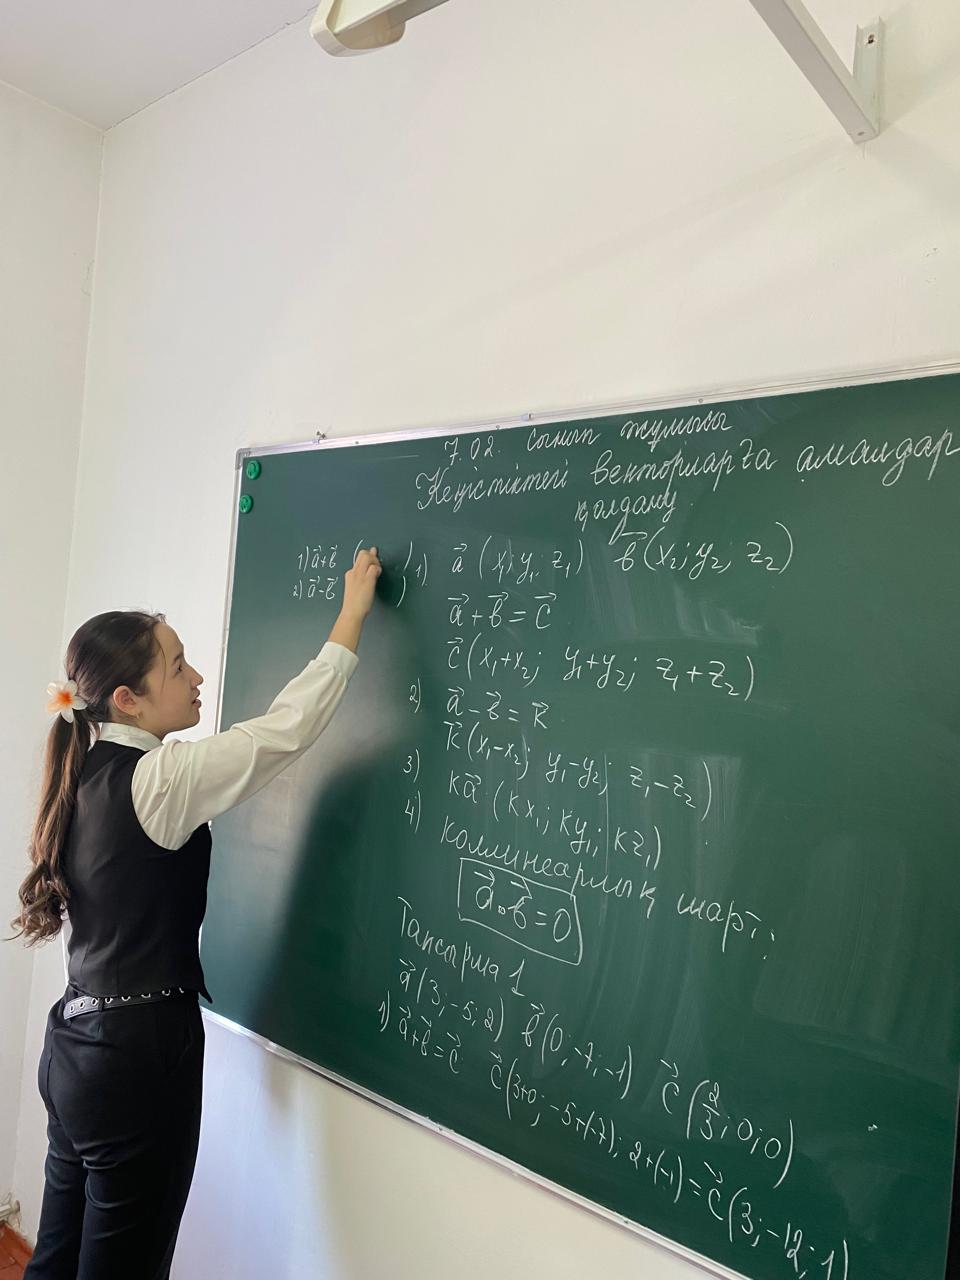 7.02. сынып жұмысы
Кеңістіктегі векторларға амалдар
қолдану
1) a⃗+b⃗ (
2) a⃗-b⃗ )
1) a⃗ (x₁; y₁; z₁) b⃗(x₂; y₂; z₂)
a⃗ + b⃗ = c⃗
c⃗(x₁+x₂; y₁+y₂; z₁+z₂)
2) a⃗ - b⃗ = k⃗
k⃗(x₁-x₂; y₁-y₂; z₁-z₂)
3) ka⃗ (kx₁; ky₁; kz₁)
4) коллинеарлық шарт:
a⃗·b⃗=0
Тапсырма 1
a⃗(3; -5; 2) b⃗(0; -7; -1) c⃗(2/3; 0; 0)
1) a⃗+b⃗=c⃗ c⃗(3+0; -5+(-7); 2+(-1)=c⃗(3; -12; 1)